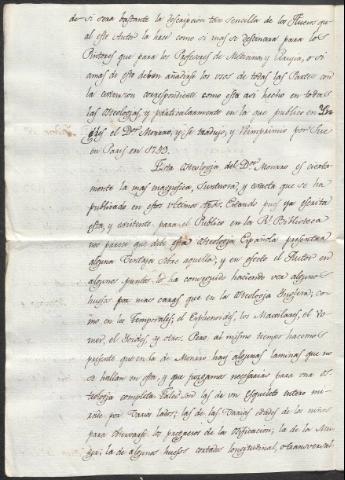 de si sera bastante la descripcion tan sencilla de los Huesos qe
al este Autor la hace como si mas se destinara para los
Pintores que para los Profesores de Medicina, y Cirugia, o si
a mas de esta deben añadirse los usos de todas las Partes con
la extension correspondiente como esta asi hecho en todas
las Osteologias, y particularmente en la que publico en
el Dor. Monroo, y se tradujo, y reimprimio por Sue
en Paris en 1759.
Esta Osteologia del Dor. Monroo es cierta-
mente la mas magnifica, suntuosa, y exacta que se ha
publicado en estos ultimos tpos. Estando pues ya escrita
esta, y existente para el Publico en la Rl. Biblioteca
nos parece que debe esta Osteologia Española presentar
alguna ventaja sobre aquella; y en efecto el Autor en
algunos puntos lo ha conseguido haciendo ver algunos
huesos por mas caras que en la Osteologia Inglesa, co-
mo en los Temporales, el Esphenoides, los Maxilares, el Vo-
mer, el Hioides, y otros. Pero al mismo tiempo hacemos
presente que en la de Monroo hay algunas laminas que no
se hallan en esta, y que juzgamos necesarias para una os-
teologia completa. Tales son las de un Esqueleto entero mi-
rado por varios lados; las de las varias edades de los niños
para observar los progresos de la osificacion; la de la
la de algunos huesos cortados longitudinal, o transversal-